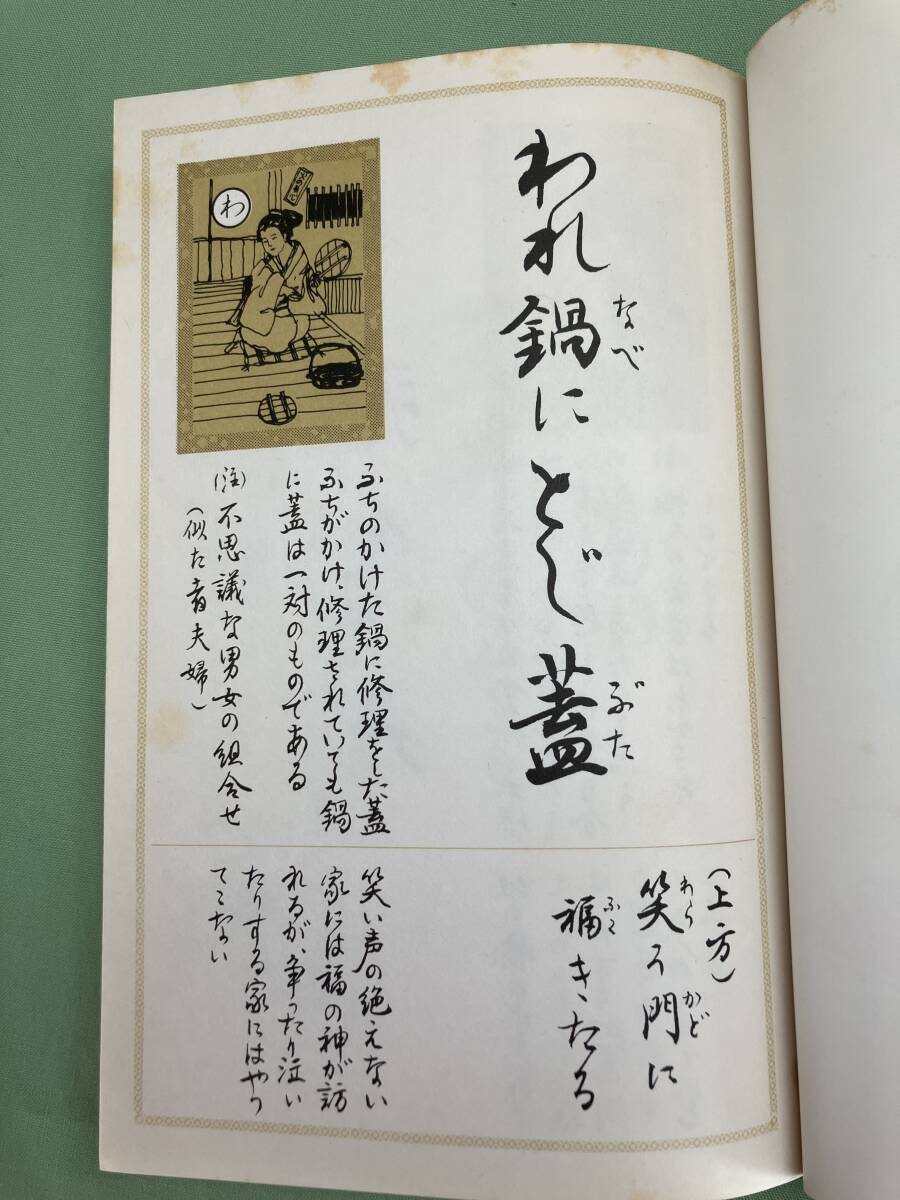 われ鍋にとじ蓋
なべ
ぶた
わ
ふちのかけた鍋に修理をした蓋
ふちがかけ、修理されていても鍋
に蓋は一対のものである
(注)不思議な男女の組合せ
(似た者夫婦)
(上方)
笑う門に
わら
かど
福きたる
ふく
笑い声の絶えない
家には福の神が訪
れるが、争ったり泣い
たりする家にはやっ
てこない